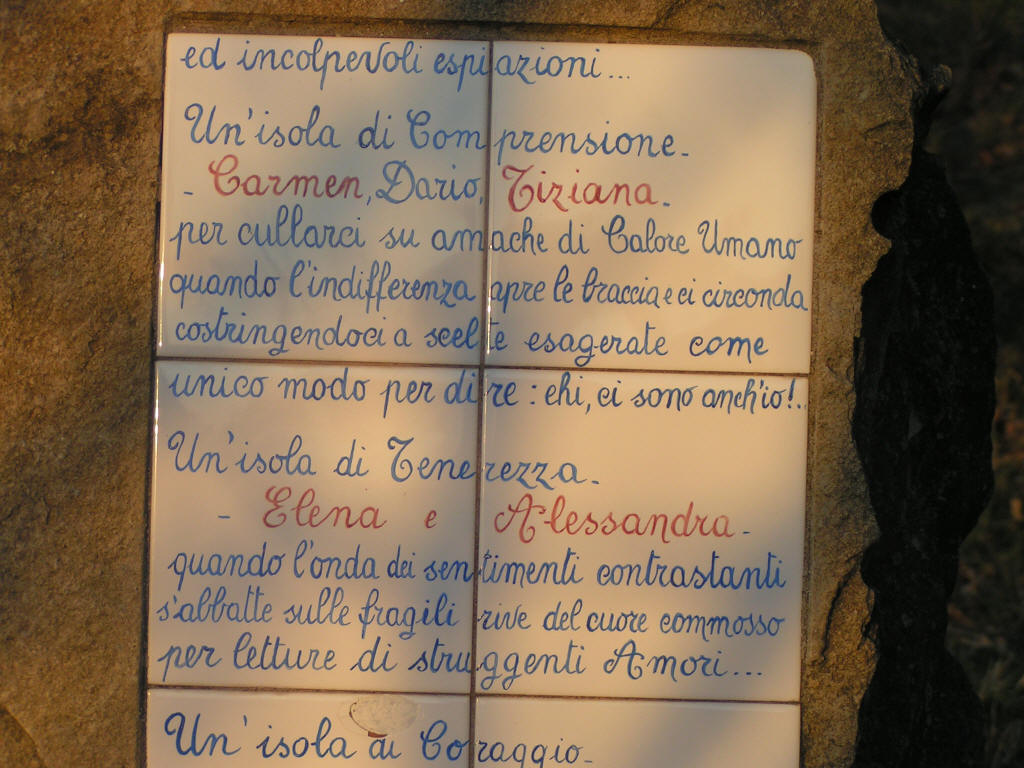 ed incolpevoli espiazioni...
Un'isola di Comprensione.
- Carmen, Dario, Tiziana.
per cullarci su amache di Calore Umano
quando l'indifferenza apre le braccia e ci circonda
costringendoci a scelte esagerate come
unico modo per dire: ehi, ci sono anch'io!..
Un'isola di Tenerezza.
- Elena e Alessandra -
quando l'onda dei sentimenti contrastanti
s'abbatte sulle fragili rive del cuore commosso
per letture di struggenti Amori...
Un'isola di Coraggio.